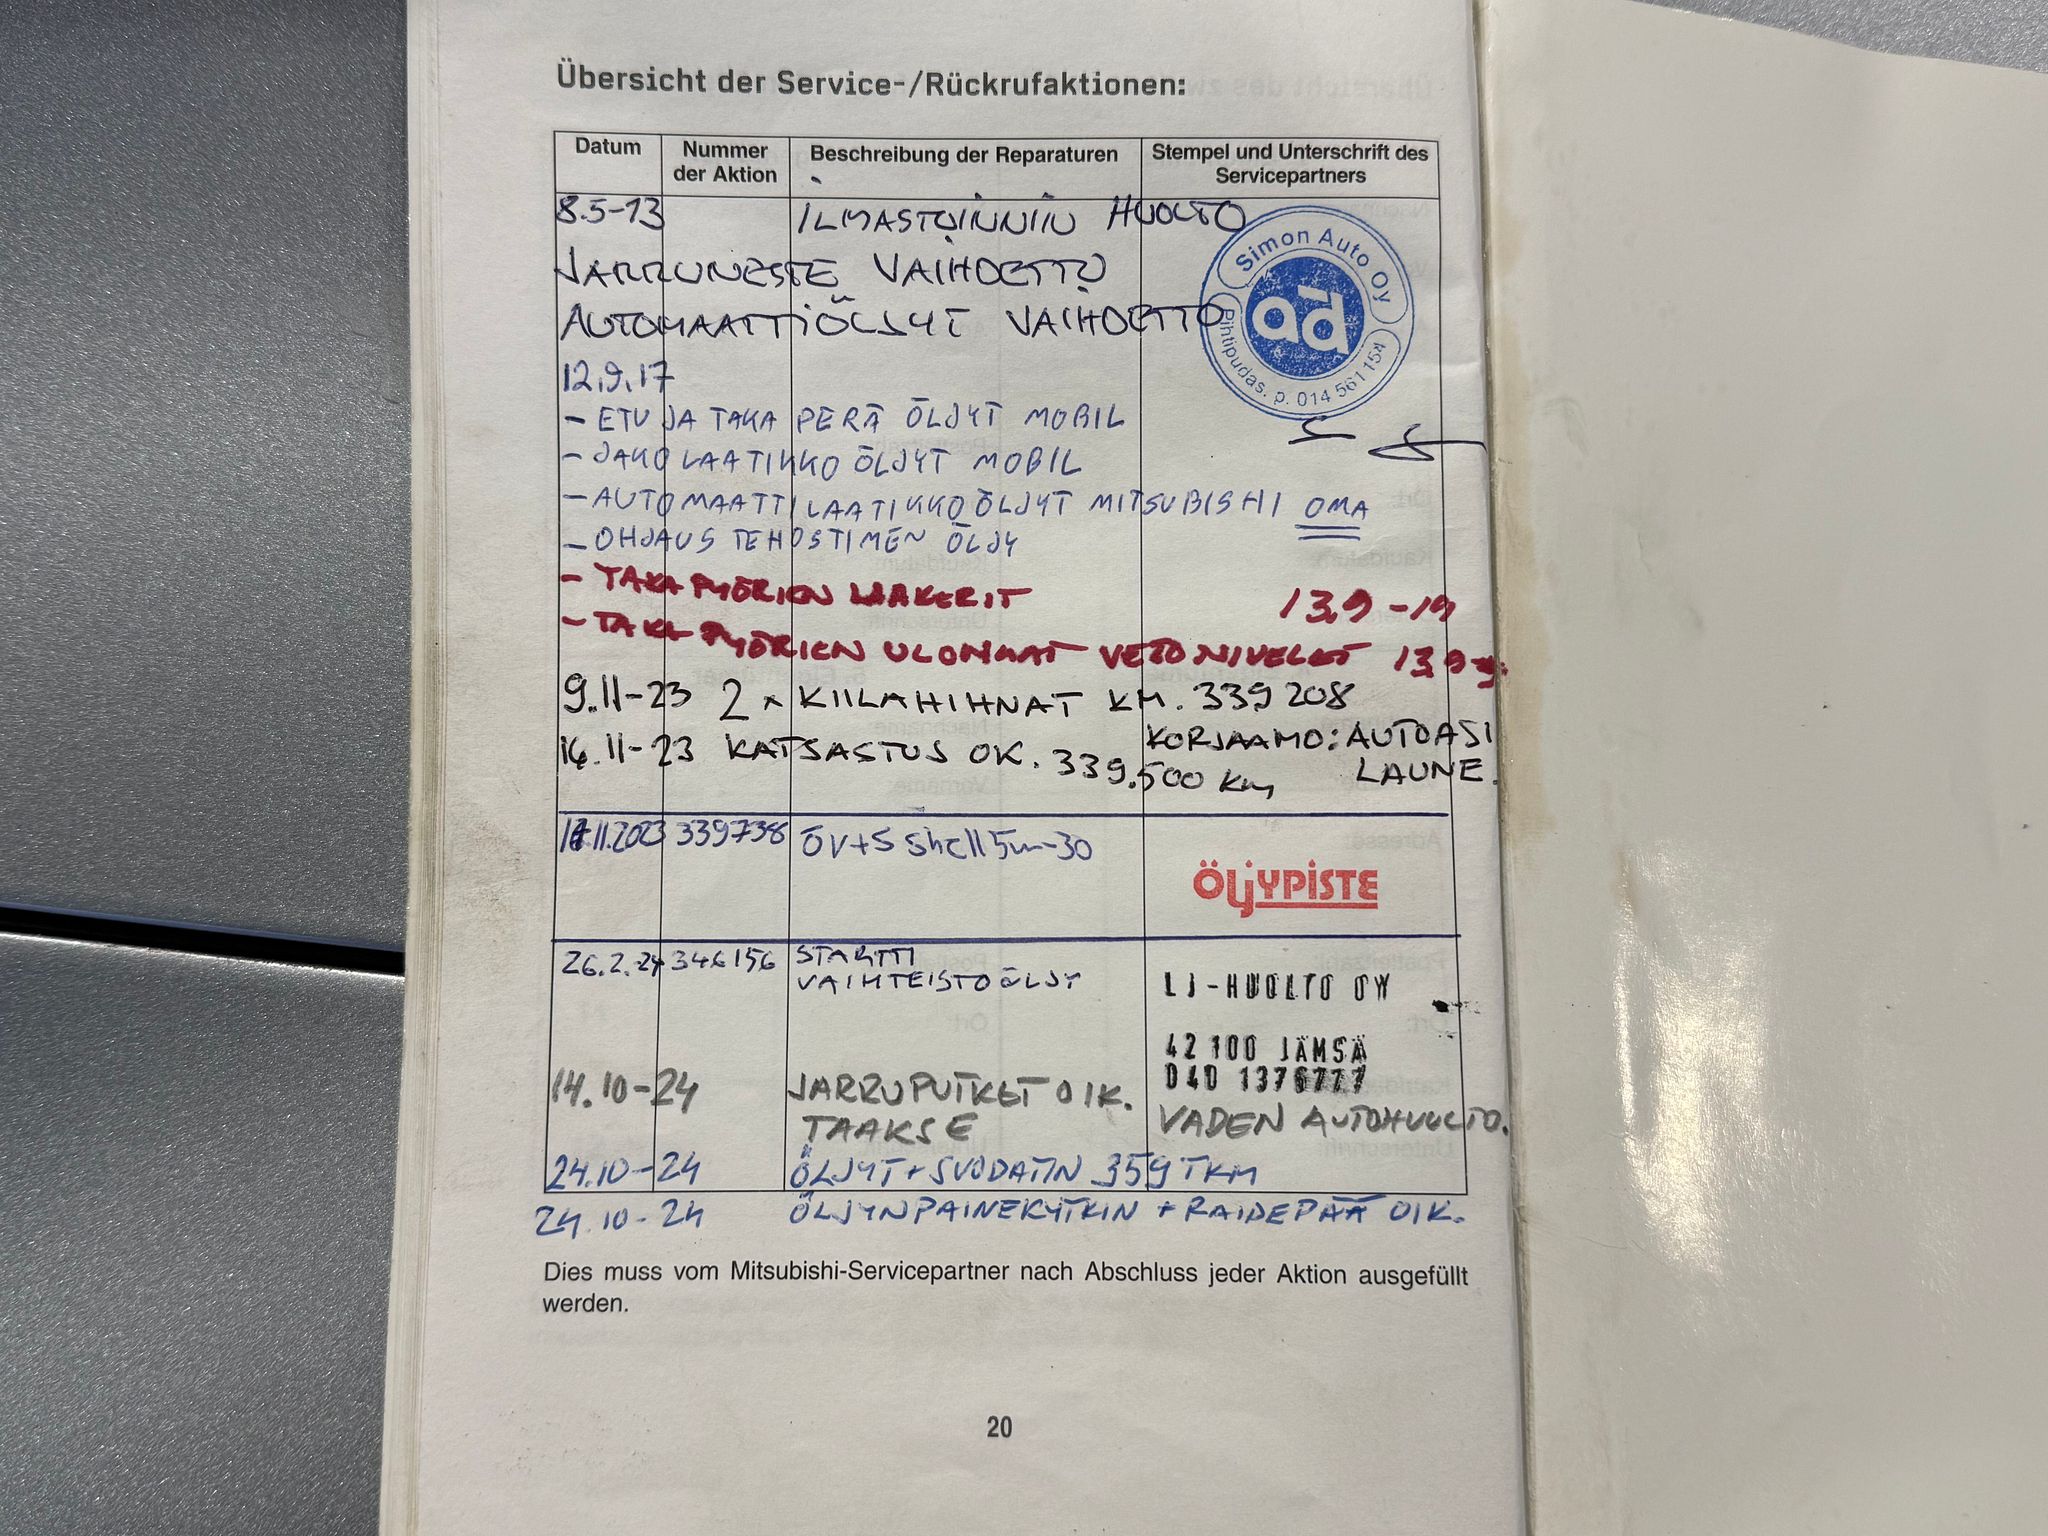 Übersicht der Service-/Rückrufaktionen:
Datum Nummer der Aktion Beschreibung der Reparaturen Stempel und Unterschrift des Servicepartners
8.5-13 ILMASTOINNIN HUOLTO
JARRUNESTE VAIHDETTU
AUTOMAATTIÖLJYT VAIHDETTU
Simon Auto Oy
ad
Pihtipudas. p. 014 561 154
12.9.17
- ETU JA TAKA PERÄ ÖLJYT MOBIL
- JAKOLAATIKKO ÖLJYT MOBIL
- AUTOMAATTILAATIKKO ÖLJYT MITSUBISHI OMA
- OHJAUSTEHOSTIMEN ÖLJY
- TAKAPYÖRIEN LAAKERIT 13.9-19
- TAKAPYÖRIEN ULOMMAT VETONIVELET 13.9
9.11-23 2 x KIILAHIHNAT KM. 339 208
KORJAAMO: AUTOASI
LAUNE.
14.11-23 KATSASTUS OK. 339.500 km
17.11.2023 339738 ÖV+S Shell 5w-30
ÖLJYPISTE
26.2.24 346156 STARTTI
VAIHTEISTOÖLJY
LJ-HUOLTO OY
42 100 JÄMSÄ
040 1376777
14.10-24 JARRUPUTKET OIK. VADEN AUTOHUOLTO.
TAAKSE
24.10-24 ÖLJYT + SUODATIN 359 TKM
24.10-24 ÖLJYNPAINEKYTKIN + RAIDEPÄÄ OIK.
Dies muss vom Mitsubishi-Servicepartner nach Abschluss jeder Aktion ausgefüllt
werden.
20